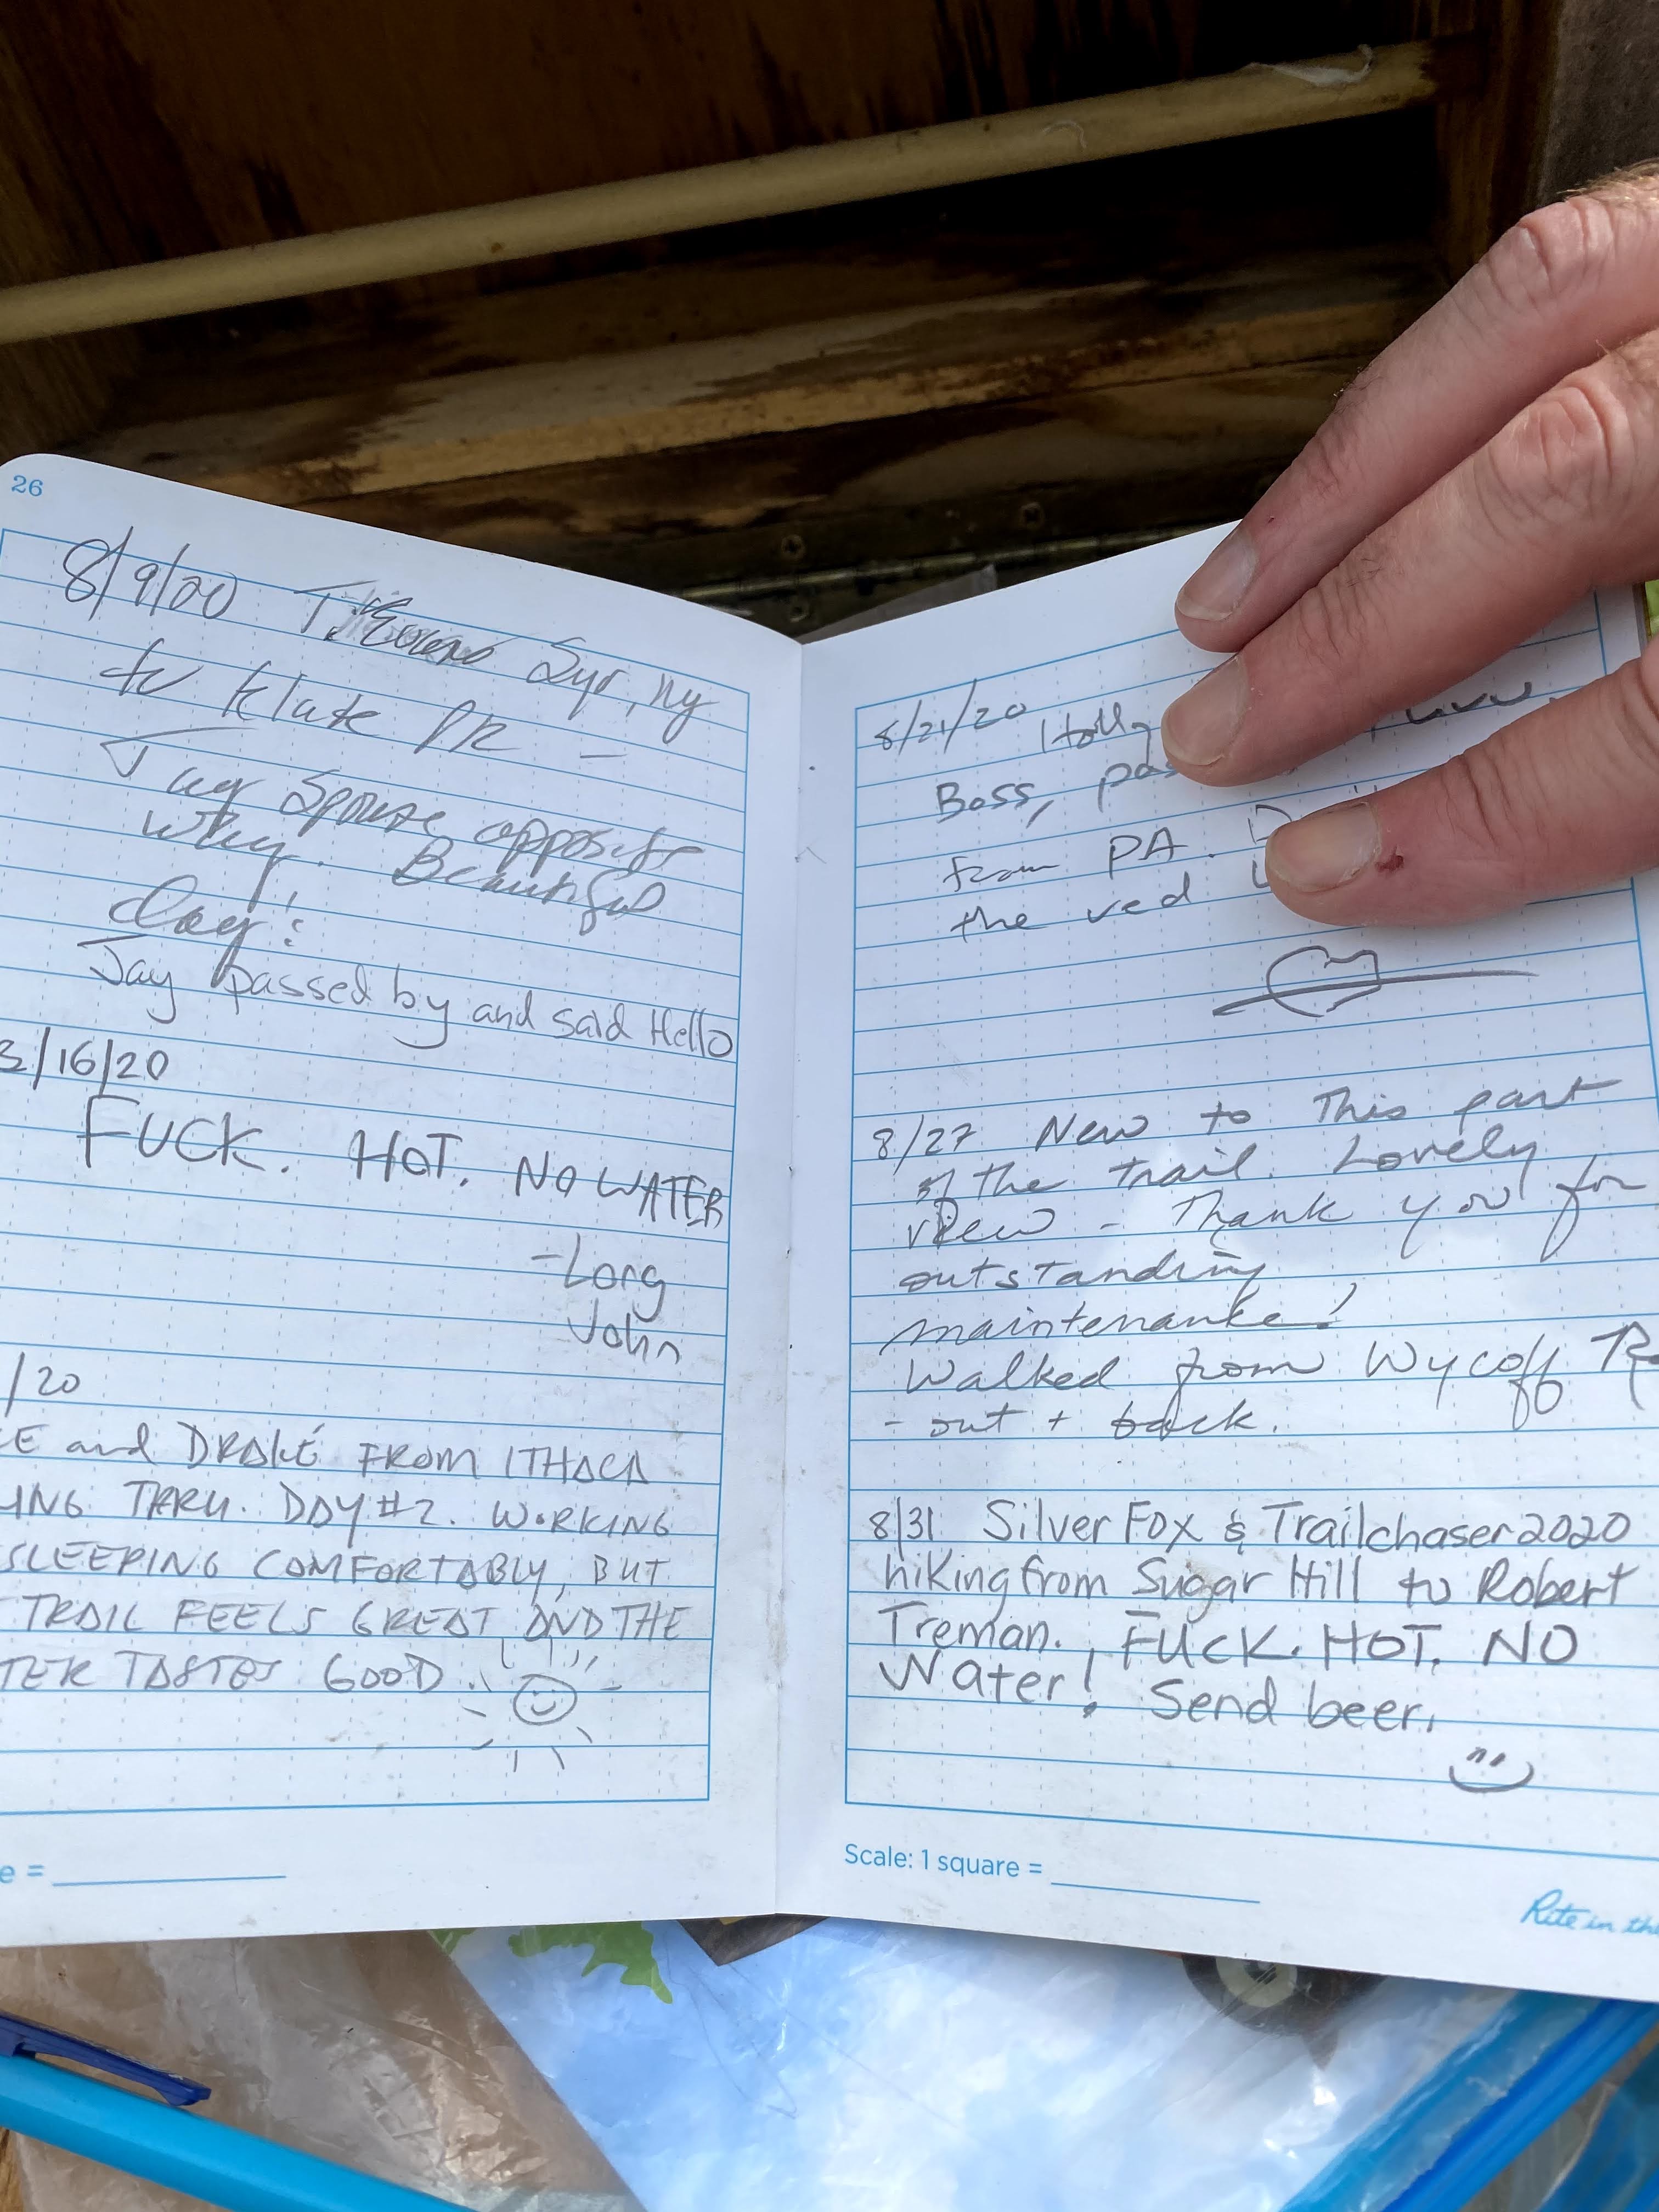 26
8/9/20 Syr, ny
to Klute
Spouse opposite
way. Beautiful
day!
Jay passed by and said Hello
/16/20
FUCK. HOT. NO WATER
-Long
John
/20
E and DRAKE FROM ITHACA
ING THRU. DAY #2. WORKING
SLEEPING COMFORTABLY, BUT
TRAIL FEELS GREAT AND THE
TER TASTES GOOD
e =
8/21/20 Holly
Boss, pas
from PA.
the red
8/27 New to This part
of the trail. Lovely
view - Thank you for
outstanding
maintenance!
Walked from Wycoff R
- out + back.
8/31 Silver Fox & Trailchaser2020
hiking from Sugar Hill to Robert
Treman. FUCK. HOT. NO
Water! Send beer.
Scale: 1 square =
Rite in the